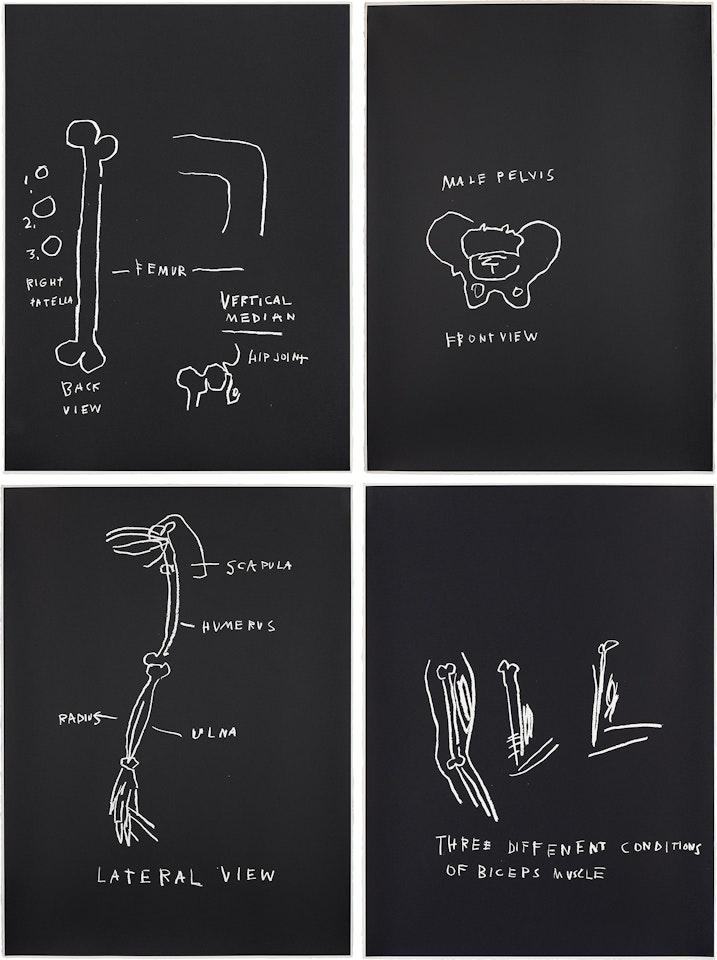 1.
2.
3.
RIGHT
PATELLA
FEMUR
VERTICAL
MEDIAN
HIP JOINT
BACK
VIEW
MALE PELVIS
FRONT VIEW
SCAPULA
HUMERUS
RADIUS
ULNA
LATERAL VIEW
THREE DIFFERENT CONDITIONS
OF BICEPS MUSCLE